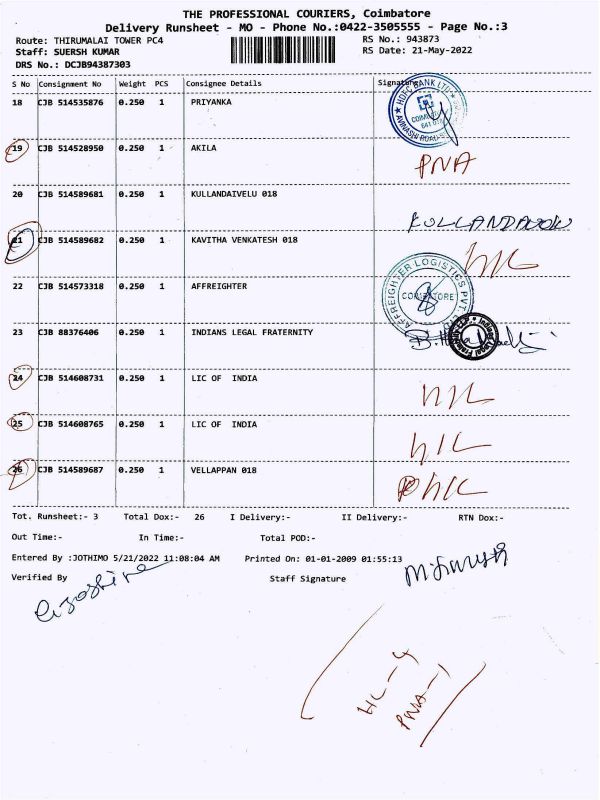 THE PROFESSIONAL COURIERS, Coimbatore
Delivery Runsheet - MO - Phone No.:0422-3505555 - Page No.:3
Route: THIRUMALAI TOWER PC4 RS No.: 943873
Staff: SUERSH KUMAR RS Date: 21-May-2022
DRS No.: DCJB94387303
S No Consignment No Weight PCS Consignee Details Signature
18 CJB 514535876 0.250 1 PRIYANKA
HDFC BANK LTD
COIMBATORE
AVINASHI ROAD
19 CJB 514528950 0.250 1 AKILA PNA
20 CJB 514589681 0.250 1 KULLANDAIVELU 018
21 CJB 514589682 0.250 1 KAVITHA VENKATESH 018 h/c
22 CJB 514573318 0.250 1 AFFREIGHTER
AFFREIGHTER LOGISTICS PVT. LTD
COIMBATORE
23 CJB 88376406 0.250 1 INDIANS LEGAL FRATERNITY
Indians Legal Fraternity
24 CJB 514608731 0.250 1 LIC OF INDIA h/c
25 CJB 514608765 0.250 1 LIC OF INDIA h/c
26 CJB 514589687 0.250 1 VELLAPPAN 018 h/c
Tot. Runsheet:- 3 Total Dox:- 26 I Delivery:- II Delivery:- RTN Dox:-
Out Time:- In Time:- Total POD:-
Entered By :JOTHIMO 5/21/2022 11:08:04 AM Printed On: 01-01-2009 01:55:13
Verified By Staff Signature
HC - 4
PNA - 1